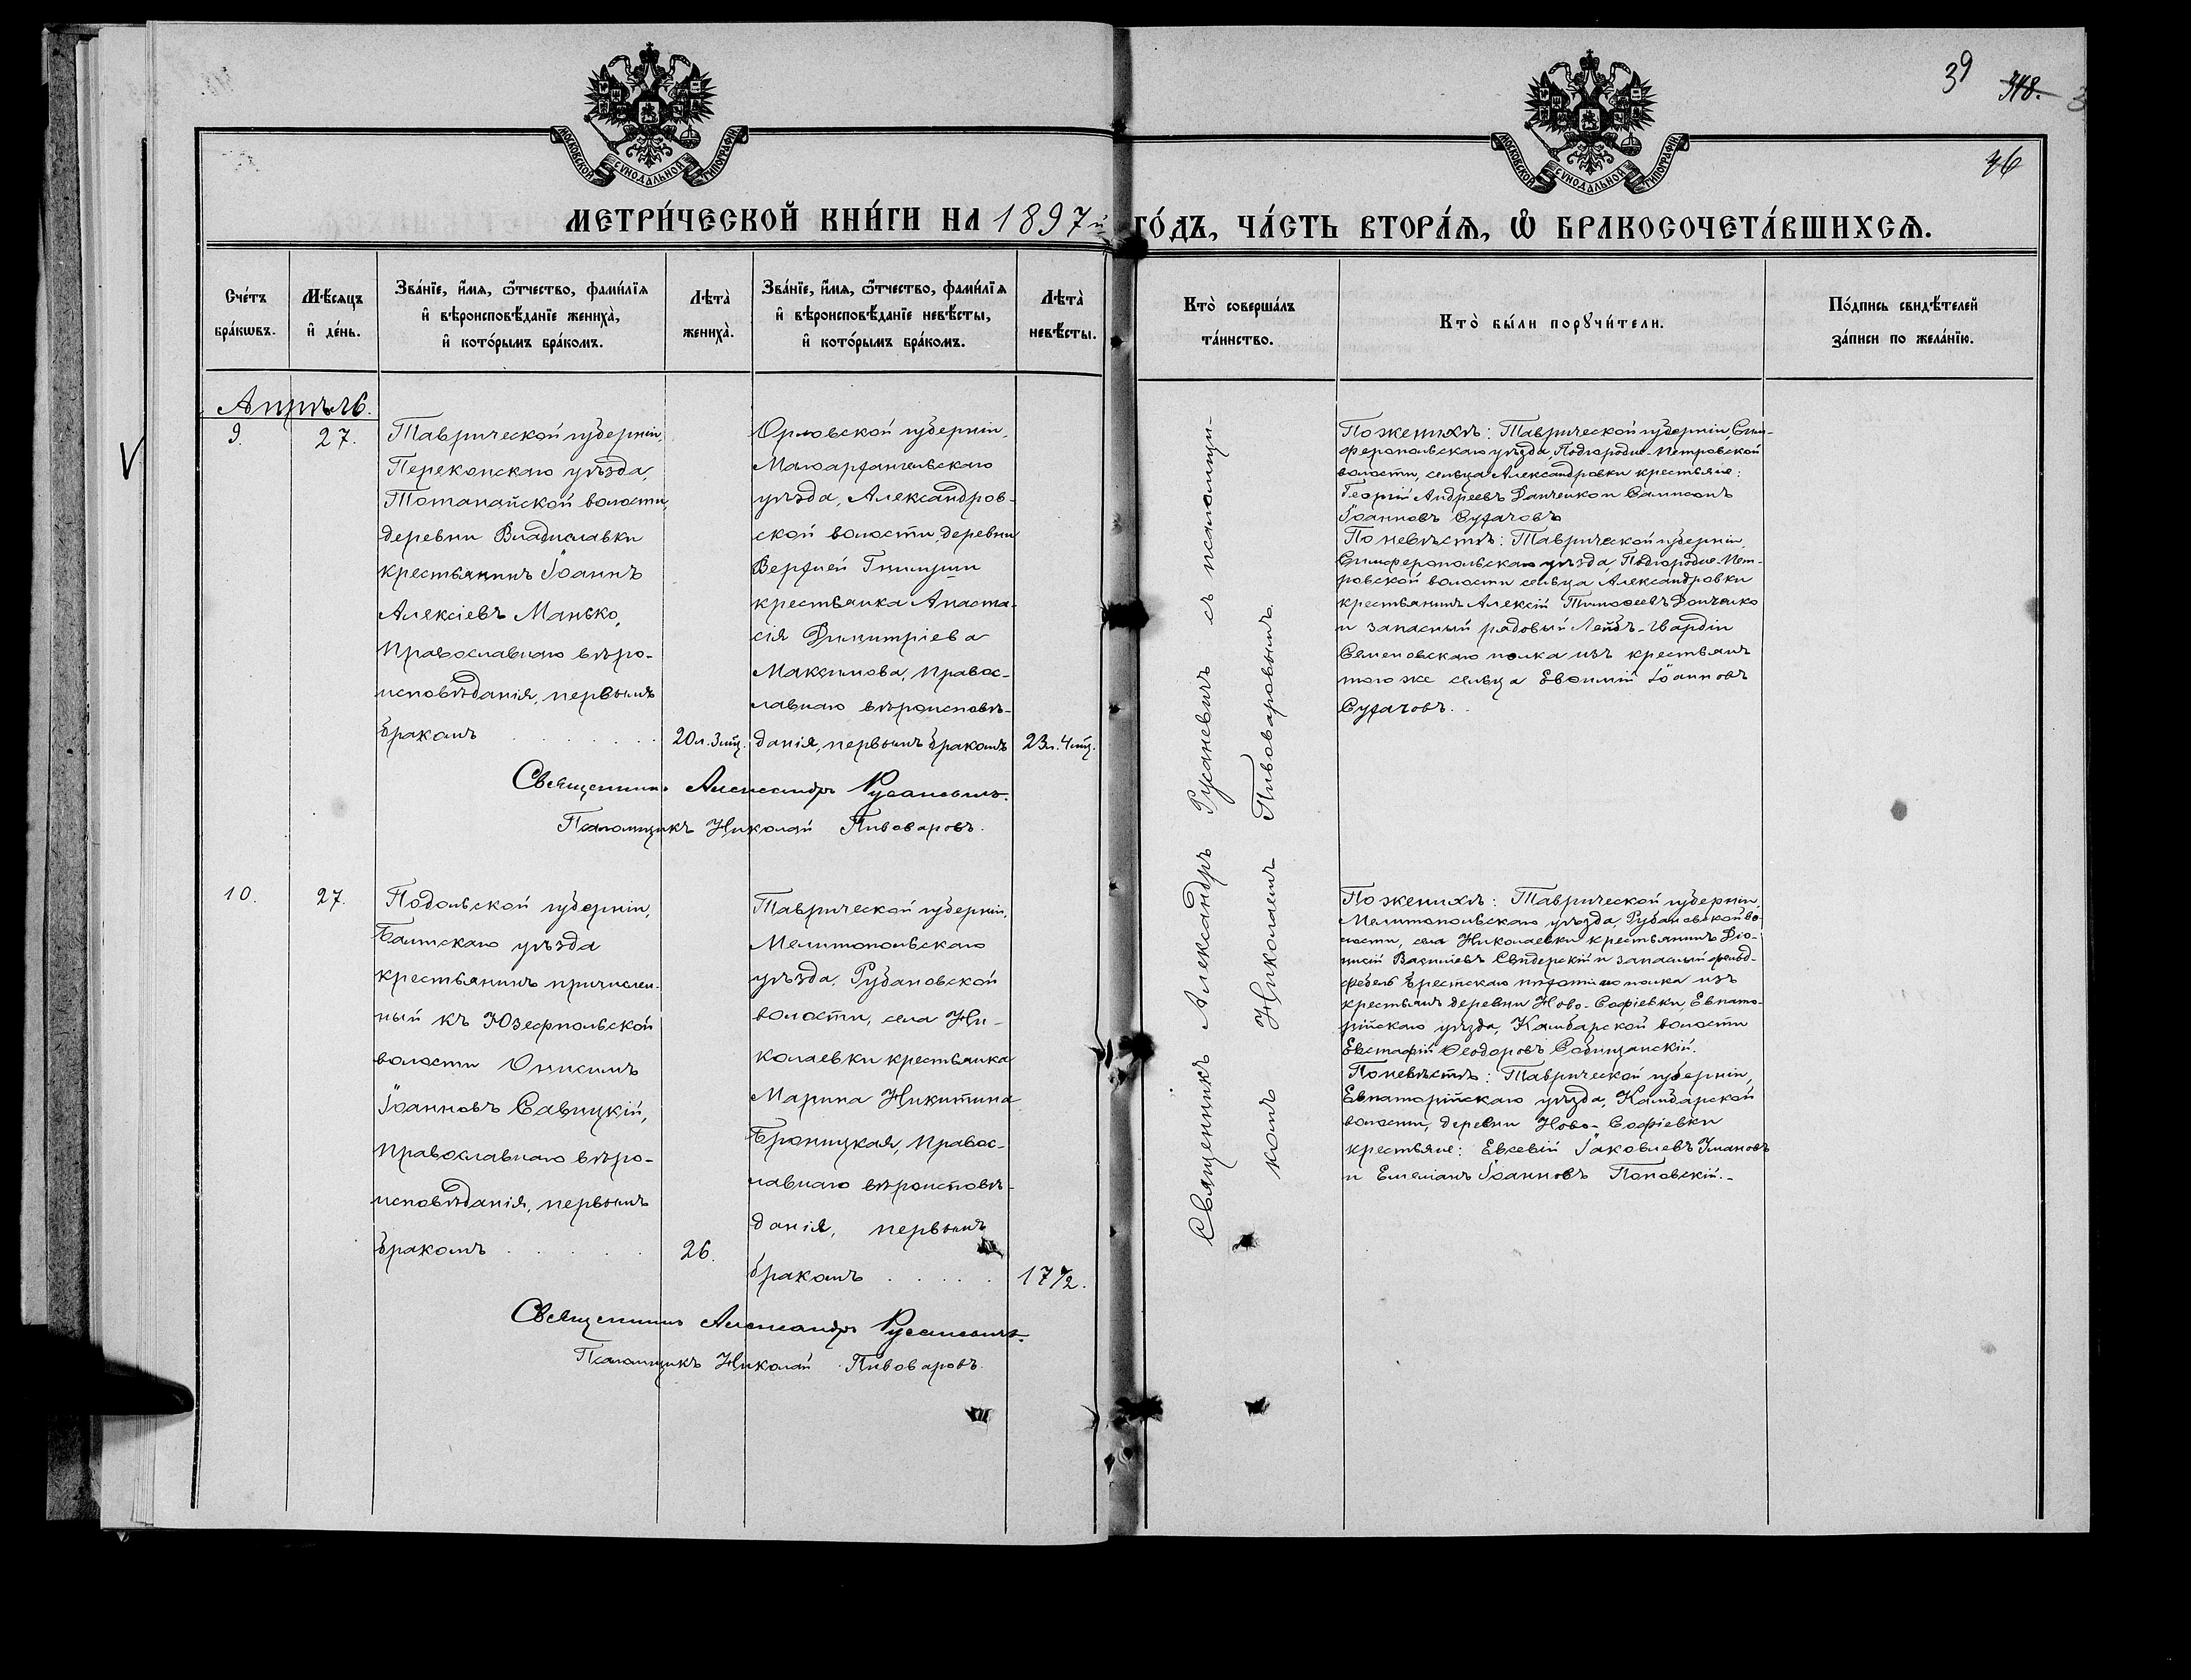 39
318.
36
МОСКОВСКОЙ СѴНОДАЛЬНОЙ ТИПОГРАФІИ
МОСКОВСКОЙ СѴНОДАЛЬНОЙ ТИПОГРАФІИ
МЕТРИ́ЧЕСКОЙ КНИ́ГИ НА 1897й ГО́ДЪ, ЧА́СТЬ ВТОРА́Ѧ, Ѡ҆ БРАКОСОЧЕТА́ВШИХСѦ.
Сче́тъ
бра́кѡвъ.
Мѣ́сяцъ
и҆ де́нь.
Зва́нїе, и҆́мя, ѻ҆́тчество, фами́лїя
и҆ вѣроисповѣ́данїе жениха̀,
и҆ кото́рымъ бра́комъ.
Лѣта̀
жениха̀.
Зва́нїе, и҆́мя, ѻ҆́тчество, фами́лїя
и҆ вѣроисповѣ́данїе невѣ́сты,
и҆ кото́рымъ бра́комъ.
Лѣта̀
невѣ́сты.
Кто̀ соверша́лъ
та́инство.
Кто̀ бы́ли порꙋчи́тели.
По́дпись свидѣ́телей
за́писи по жела́нїю.
Апрѣль.
9.
27.
Таврической губерніи,
Перекопскаго уѣзда,
Тотанайской волости,
деревни Владиславки
крестьянинъ Іоаннъ
Алексіевъ Манько,
православнаго вѣро-
исповѣданія, первымъ
бракомъ
20 л. 3 мц.
Орловской губерніи,
Малоархангельскаго
уѣзда, Александров-
ской волости, деревни
Верхней Гнилуши
крестьянка Анаста-
сія Димитріева
Максимова, правос-
лавнаго вѣроисповѣ-
данія, первымъ бракомъ
23 л. 4 мц.
Священникъ Александръ Русаневичъ.
Псаломщикъ Николай Пивоваровъ.
Священникъ Александръ Русаневичъ съ псаломщи-
комъ Николаемъ Пивоваровымъ.
По женихѣ: Таврической губерніи, Сим-
феропольскаго уѣзда, Подгородне-Петровской
волости, сельца Александровки крестьяне:
Георгій Андреевъ Данченко и Сампсонъ
Іоанновъ Сухачовъ
По невѣстѣ: Таврической губерніи,
Симферопольскаго уѣзда, Подгородне-Пет-
ровской волости сельца Александровки
крестьянинъ Алексій Тимоѳеевъ Донченко
и запасный рядовый Лейбъ-Гвардіи
Семеновскаго полка изъ крестьянъ
того же сельца Евѳимій Іоанновъ
Сухачовъ.
10.
27.
Подольской губерніи,
Балтскаго уѣзда
крестьянинъ причислен-
ный къ Юзефпольской
волости Онисимъ
Іоанновъ Савицкій,
православнаго вѣро-
исповѣданія, первымъ
бракомъ
26.
Таврической губерніи,
Мелитопольскаго
уѣзда, Рубановской
волости, села Ни-
колаевки крестьянка
Марина Никитина
Броницкая, правос-
лавнаго вѣроисповѣ-
данія, первымъ
бракомъ
17 ½.
Священникъ Александръ Русаневичъ.
Псаломщикъ Николай Пивоваровъ.
По женихѣ: Таврической губерніи,
Мелитопольскаго уѣзда, Рубановской во-
лости, села Николаевки крестьянинъ Діо-
нисій Василіевъ Свидерскій и запасный фельд-
фебель Брестскаго пѣхотнаго полка изъ
крестьянъ деревни Ново-Софіевки, Евпато-
рійскаго уѣзда, Камбарской волости
Евстафій Ѳеодоровъ Собищанскій.
По невѣстѣ: Таврической губерніи,
Евпаторійскаго уѣзда, Камбарской
волости, деревни Ново-Софіевки
крестьяне: Евсевій Іаковлевъ Умановъ
и Емеліанъ Іоанновъ Поповскій.